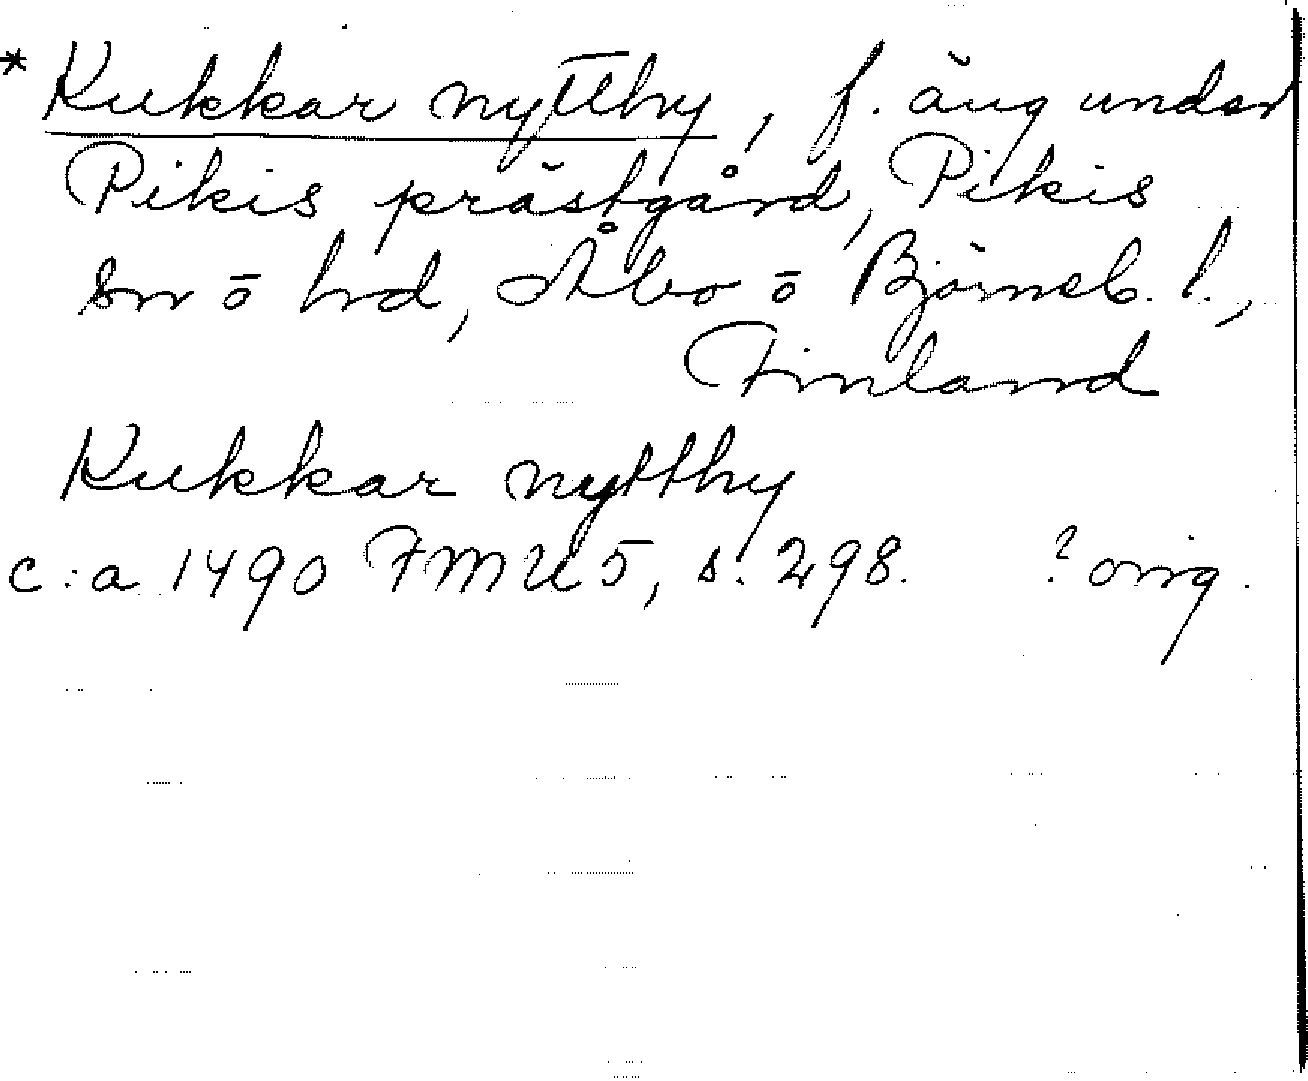 * Kukkar nytthy, f. äng under
Pikis prästgård, Pikis
sn ō hd, Åbo ō Björneb. l.,
Finland
Kukkar nytthy
c:a 1490 FMU 5, s. 298. ? orig.